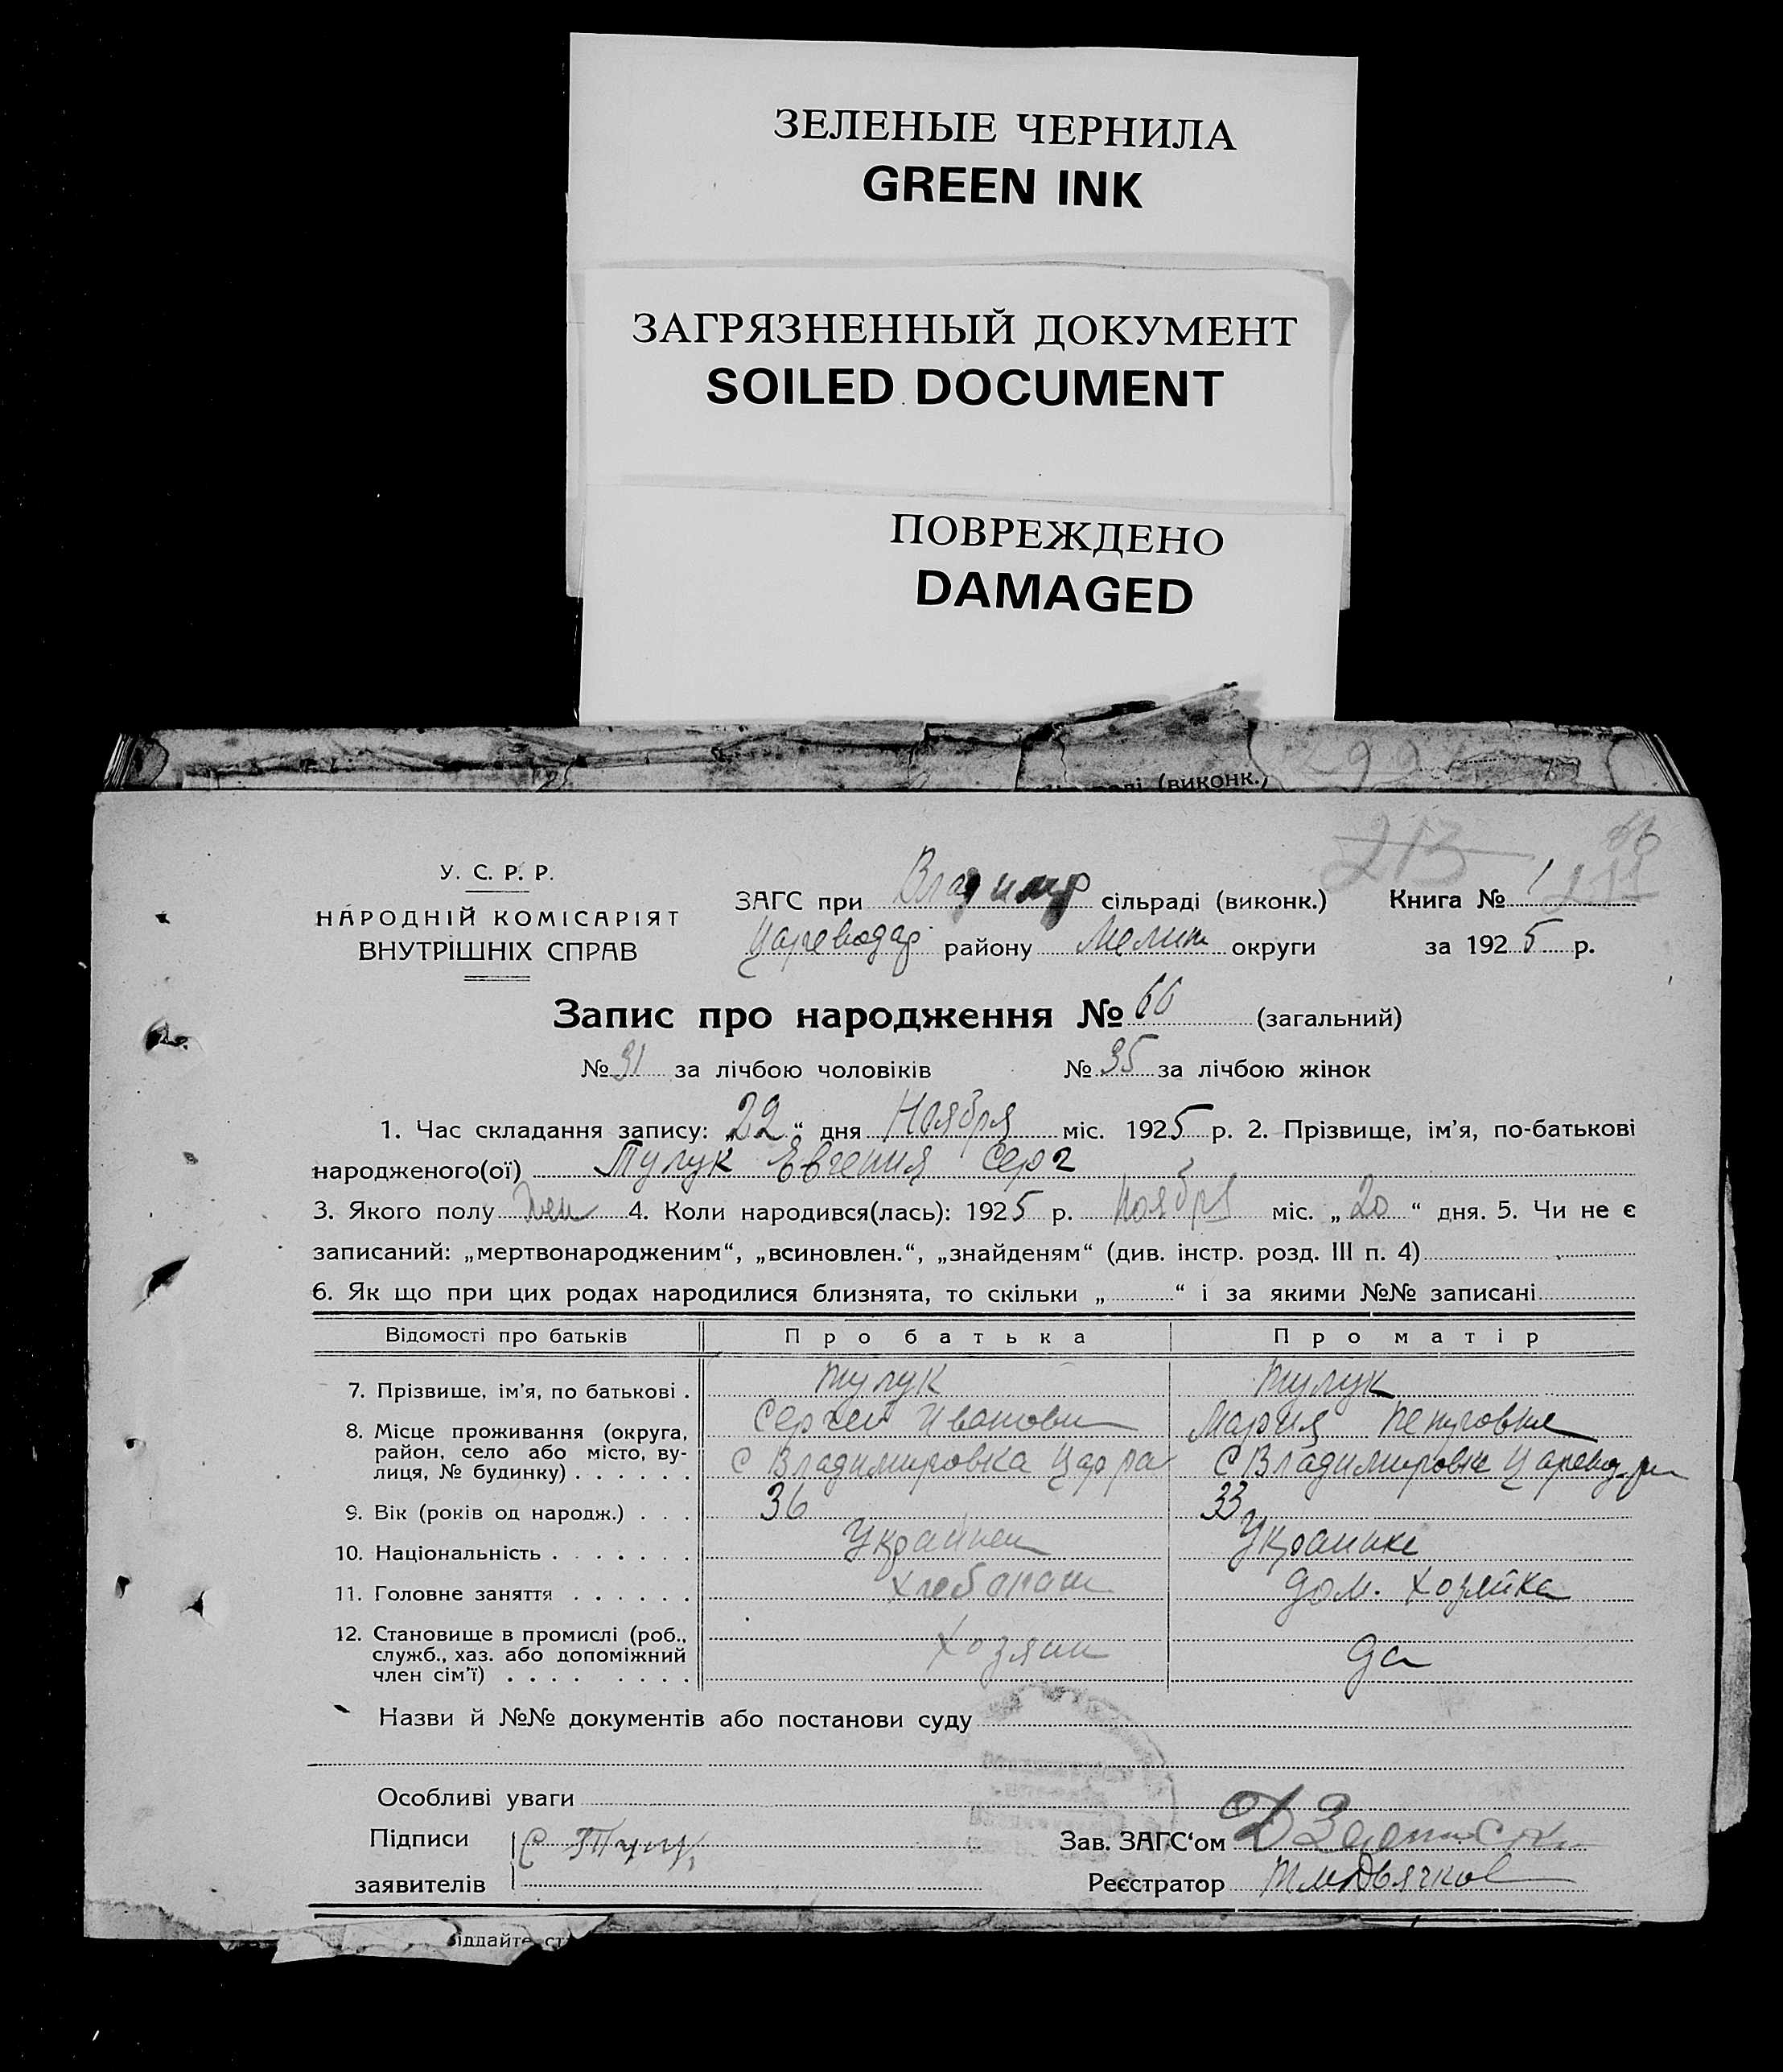 ЗЕЛЕНЫЕ ЧЕРНИЛА
GREEN INK
ЗАГРЯЗНЕННЫЙ ДОКУМЕНТ
SOILED DOCUMENT
ПОВРЕЖДЕНО
DAMAGED
299
(виконк.)
213 66
211
У. С. Р. Р.
НАРОДНІЙ КОМІСАРІЯТ
ВНУТРІШНІХ СПРАВ
ЗАГС при Владимр сільраді (виконк.) Книга № 1
Цареводар району Мелит округи за 1925 р.
Запис про народження № 66 (загальний)
№ 31 за лічбою чоловіків № 35 за лічбою жінок
1. Час складання запису: „22“ дня Ноября міс. 1925 р. 2. Прізвище, ім’я, по-батькові
народженого(ої) Тулук Евгения Серг
3. Якого полу жен 4. Коли народився(лась): 1925 р. ноября міс. „20“ дня. 5. Чи не є
записаний: „мертвонародженим“, „всиновлен.“, „знайденям“ (див. інстр. розд. III п. 4)
6. Як що при цих родах народилися близнята, то скільки „ “ і за якими №№ записані
Відомості про батьків Про батька Про матір
7. Прізвище, ім’я, по батькові . Тулук Тулук
Сергей Иванович Мария
8. Місце проживання (округа, район, село або місто, вулиця, № будинку) С Владимировка Цар ра С Владимировк Царевод. р
9. Вік (років од народж.) . . . 36 33
10. Національність . Украинец Украинка
11. Головне заняття Хлебопаш Дом. хозяйка
12. Становище в промислі (роб., служб., хаз. або допоміжний член сім’ї) Хозяин да
Назви й №№ документів або постанови суду
Особливі уваги
Підписи С Тулук Зав. ЗАГС‘ом
заявителів Реєстратор Дьячков
іддайте ст